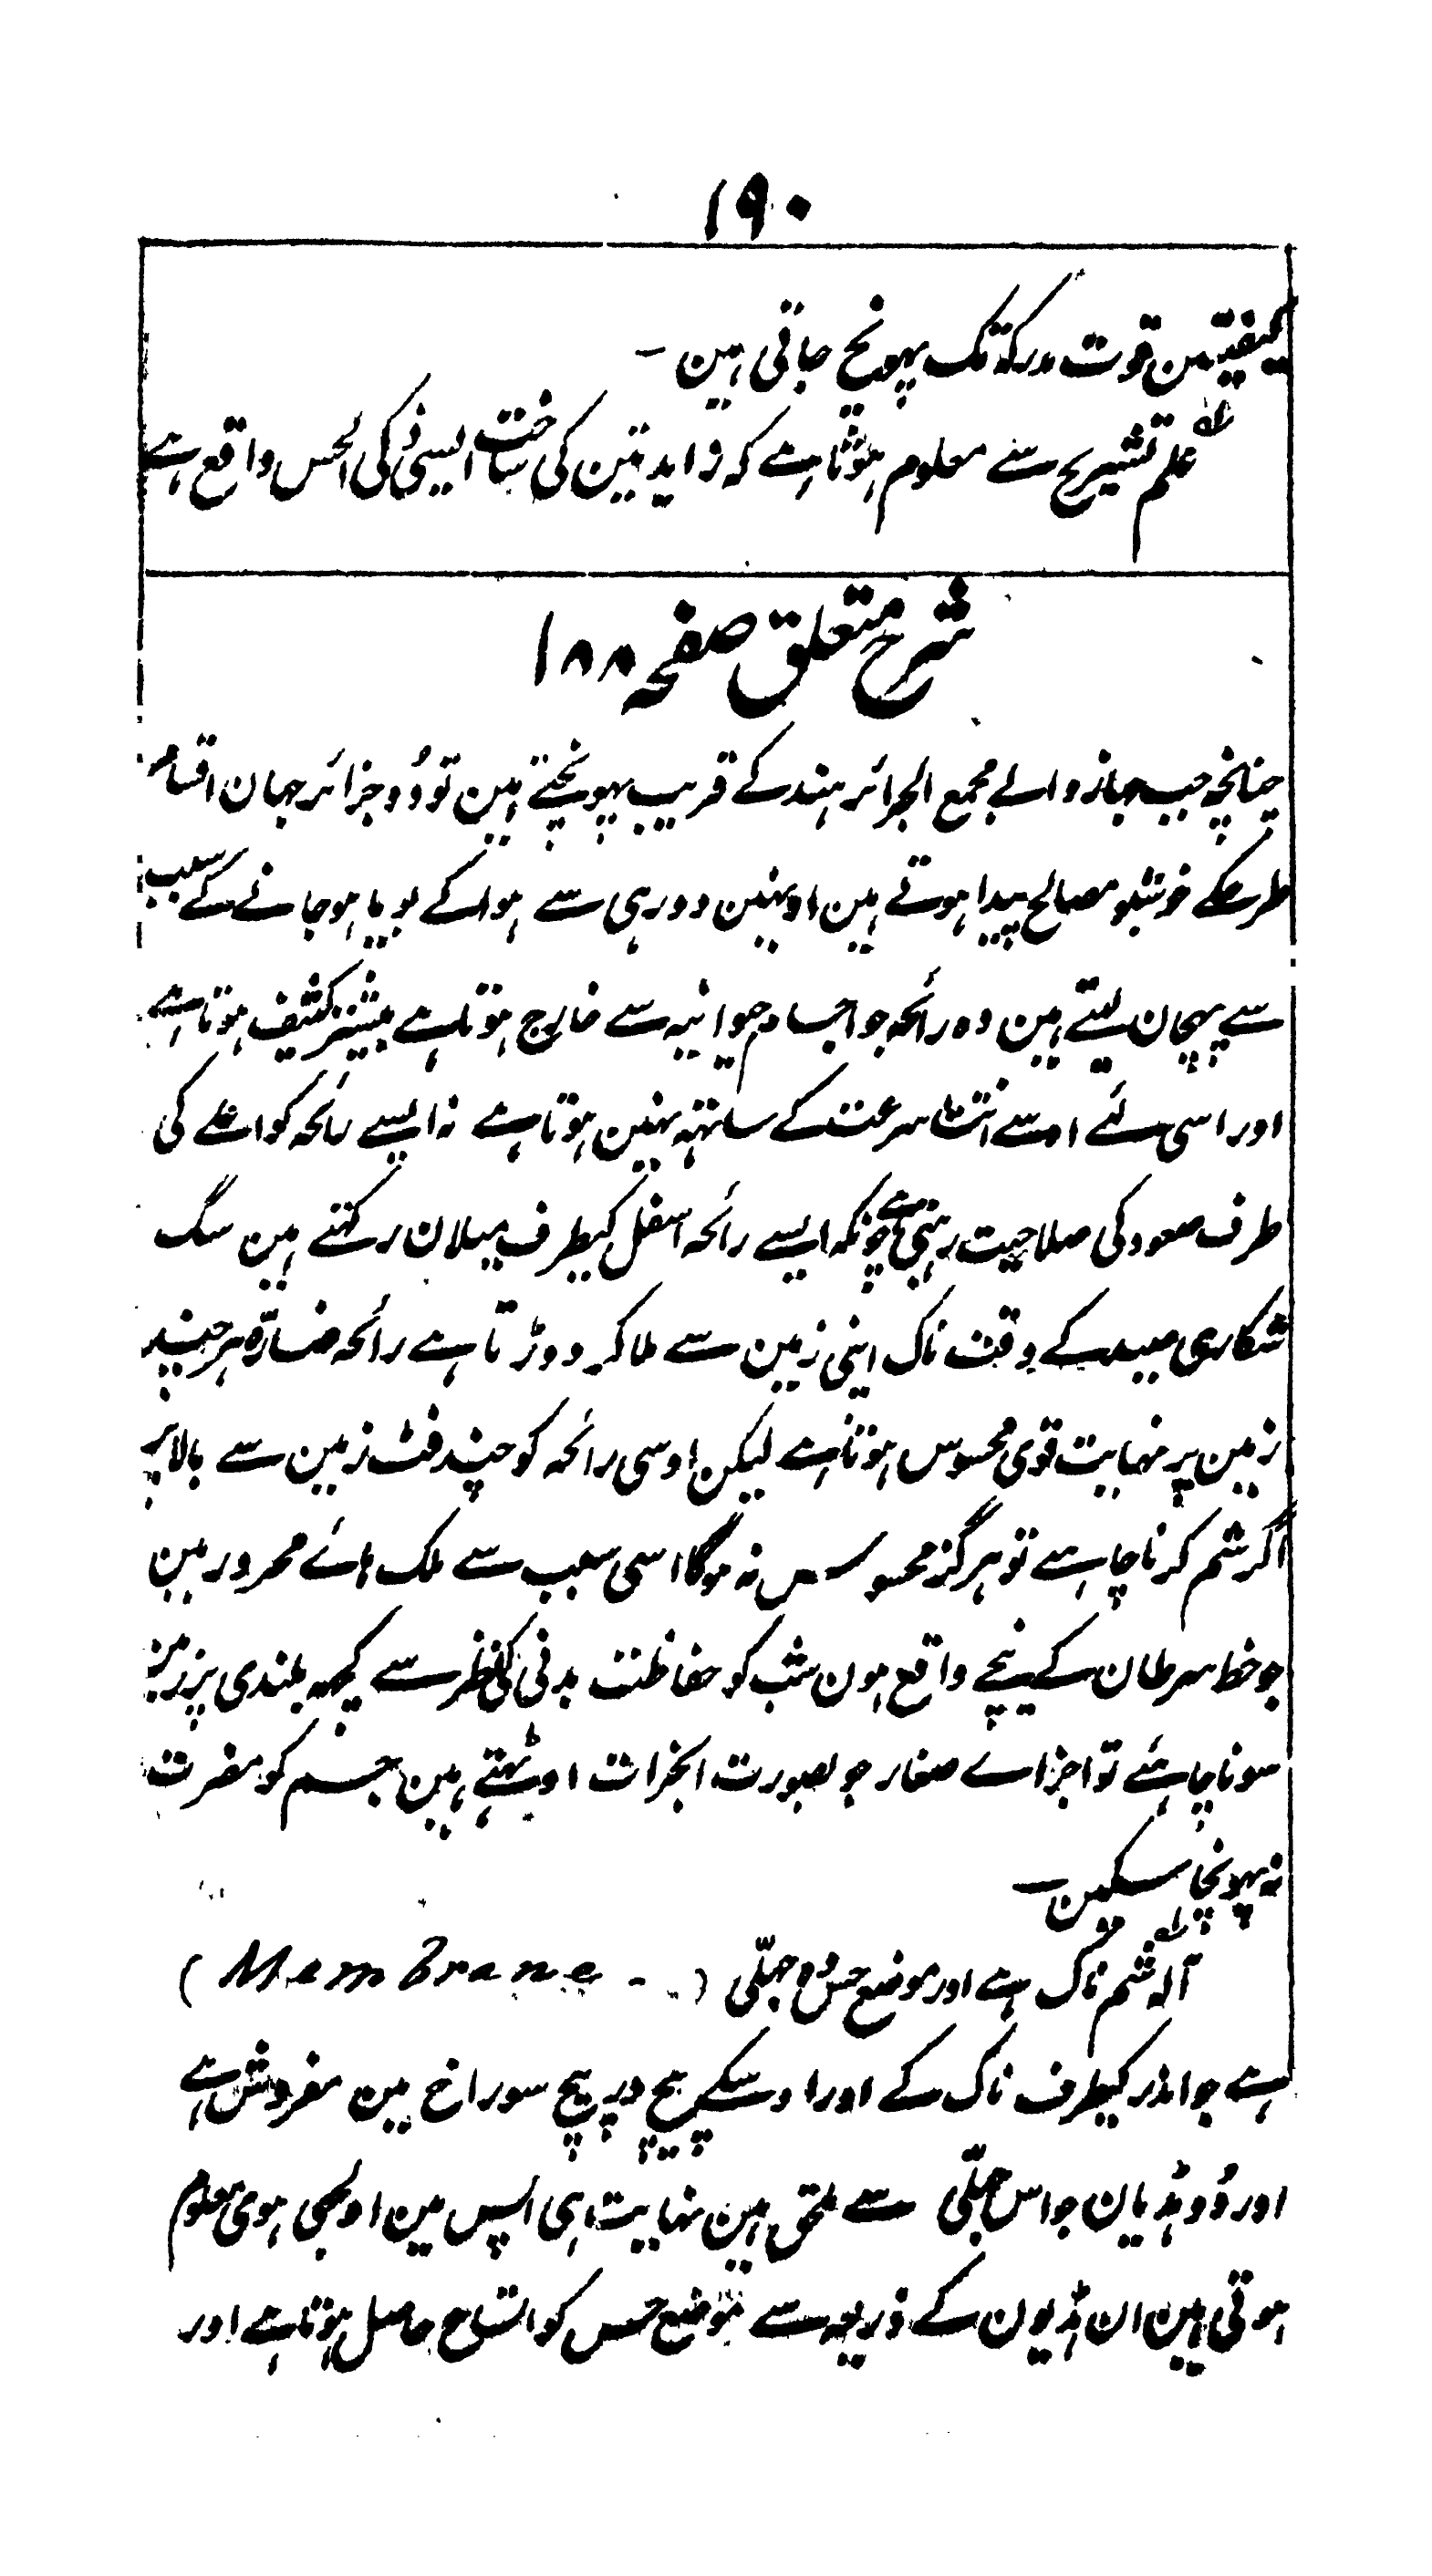 ۱۹۰
کیفیتین قوت مدرکہ تک پہونچ جاتی ہین -
علم تشریح سے معلوم ہوتا ہے کہ زایدتین کی ساخت ایسی ذکی الحس واقع ہے
شرح متعلق صفحہ ۱۸۸
چنانچہ جب جہاز والے مجمع الجزائر ہند کے قریب پہونچتے ہین تو وُو جزائر جہان اقسام
طرح کے خوشبو مصالح پیدا ہوتے ہین اونہین دور ہی سے ہوا کے بویا ہوجانے کے سبب
سے پہچان لیتے ہین وہ رائحہ جو اجساد حیوانیہ سے خارج ہوتا ہے بیشتر کثیف ہوتا ہے
اور اسی لئے اوسے انتشا سرعت کے ساتھہ نہین ہوتا ہے نہ ایسے رائحہ کو اعلے کی
طرف صعود کی صلاحیت رہتی ہے چونکہ ایسے رائحہ اسفل کیطرف میلان رکھتے ہین سگ
شکاری صید کے وقت ناک اپنی زمین سے ملا کر دوڑتا ہے رائحہ ضارّہ ہر چند
زمین پر نہایت قوی محسوس ہوتا ہے لیکن اوسی رائحہ کو چند فٹ زمین سے بالا تر
اگر شم کرنا چاہے تو ہرگز محسوس نہ ہوگا اسی سبب سے ملک ہائے محرور مین
جو خط سرطان کے نیچے واقع ہون شب کو حفاظت بدنی کی نظر سے کچھہ بلندی پر زمین
سونا چاہئے تو اجزاے صغار جو بصورت ابخرات اوٹہتے ہین جسم کو مضرت
نہ پہونچا سکین —
آلہ شم ناک ہے اور موضع حس وہ جھلّی ( Membrane - )
ہے جو اندر کیطرف ناک کے اور اوسکے پیچ در پیچ سوراخ مین مفروش ہے
اور وُو ہڈیان جو اس جھلّی سے ملحق ہین نہایت ہی اپس مین اولجھی ہوی معلوم
ہوتی ہین ان ہڈیون کے ذریعہ سے موضع حس کو اتساع حاصل ہوتا ہے اور